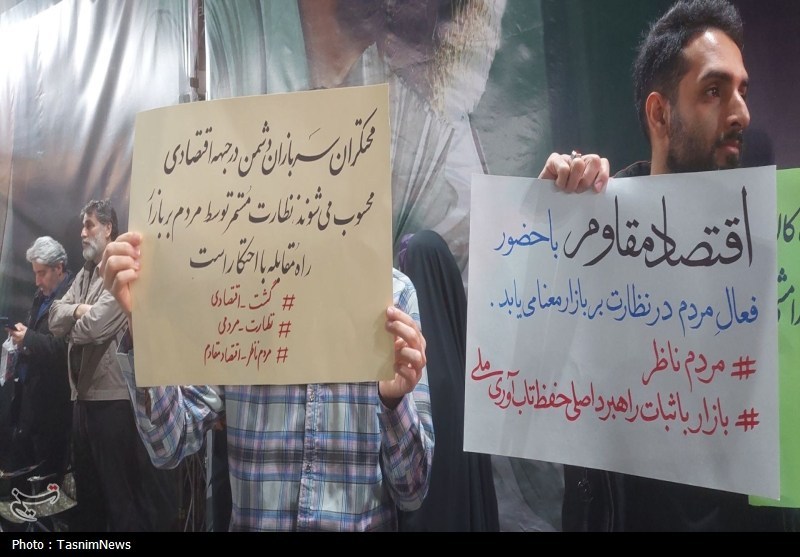 محتکران سربازان دشمن در جبهه اقتصادی
محسوب می‌شوند نظارت مُستمر توسط مردم بر بازار
راه مُقابله با احتکار است
# گشت_اقتصادی
# نظارت_مردمی
# مردم ناظر_اقتصاد مقاوم
اقتصاد مقاوم با حضور
فعالِ مردم در نظارت بر بازار معنا می یابد.
# مردم ناظر
# بازار با ثبات راهبرد اصلی حفظ تاب آوری ملی
تسنیم
Photo : TasnimNews